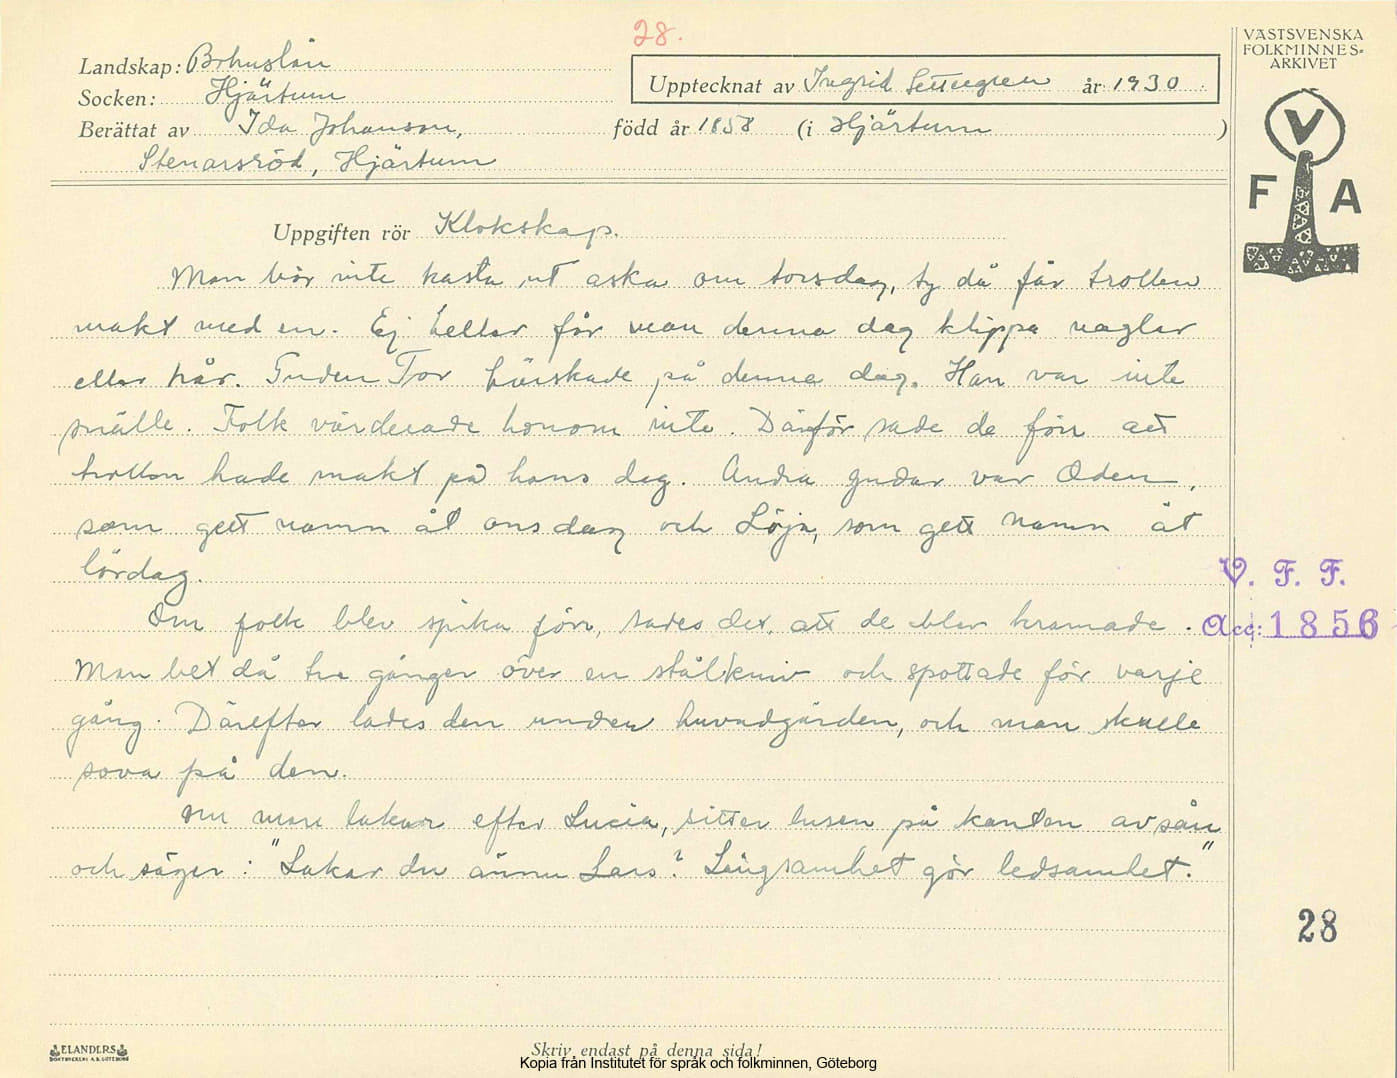 28.
VÄSTSVENSKA
FOLKMINNES-
ARKIVET
Landskap: Bohuslän
Upptecknat av Ingrid år 1930
Socken: Hjärtum
Berättat av Ida Johanson, född år 1858 (i Hjärtum )
Stenarsröd, Hjärtum
V
F A
Uppgiften rör Klokskap.
Man bör inte kasta ut aska om torsdag, ty då får trollen
makt med en. Ej heller får man denna dag klippa naglar
eller hår. Guden Tor härskade på denna dag. Han var inte
snälle. Folk värderade honom inte. Därför sade de förr att
trollen hade makt på hans dag. Andra gudar var Oden,
som gett namn åt onsdag och Löja, som gett namn åt
lördag.
V. F. F.
Om folk blev sjuka förr, sades det, att de blev kramade.
Acc: 1856
Man bet då tre gånger över en stålkniv och spottade för varje
gång. Därefter lades den under huvudgärden, och man skulle
sova på den.
Om man bakar efter Lucia, sitter lusen på kanten av
och säger: "Lakar du ännu Lars? Långsamhet gör ledsamhet."
28
ELANDERS
BOKTRYCKERI A.B. GÖTEBORG
Skriv endast på denna sida!
Kopia från Institutet för språk och folkminnen, Göteborg